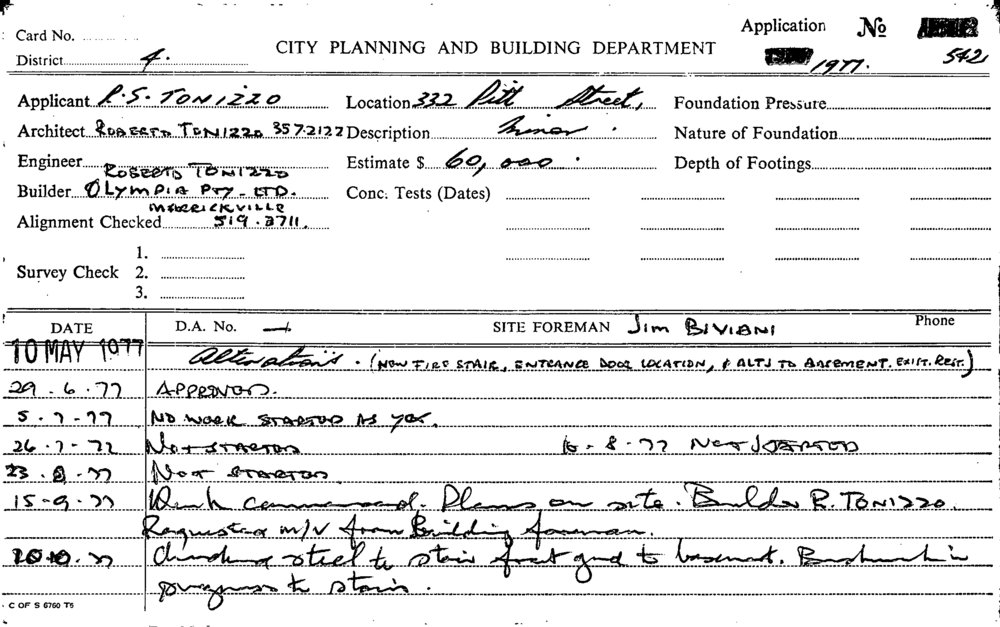 Card No.
District 4.
CITY PLANNING AND BUILDING DEPARTMENT
Application No
1977. 542
Applicant R.S. TONIZZO
Location 332 Pitt Street,
Foundation Pressure
Architect ROBERTO TONIZZO 357.2122
Description Minor.
Nature of Foundation
Engineer
Estimate $ 60,000.
Depth of Footings
ROBERTO TONIZZO
Builder OLYMPIA PTY. LTD.
Conc. Tests (Dates)
MARRICKVILLE
Alignment Checked 519.3711.
Survey Check
1.
2.
3.
DATE
D.A. No. —
SITE FOREMAN JIM BIVIANI
Phone
10 MAY 1977 Alterations. (NEW FIRE STAIR, ENTRANCE DOOR LOCATION, & ALTS TO BASEMENT. EXIST. REST.)
29.6.77 APPROVED.
5.7.77 NO WORK STARTED AS YET.
26.7.77 NOT STARTED 16-8-77 NOT STARTED
23.8.77 NOT STARTED
15-9-77 Work commenced. Plans on site. Builder R. TONIZZO.
Requested m/v from Building foreman.
10.77 Checked steel to stair from gnd to basement. Brickwork in
progress to stairs.
C OF S 6760 T5